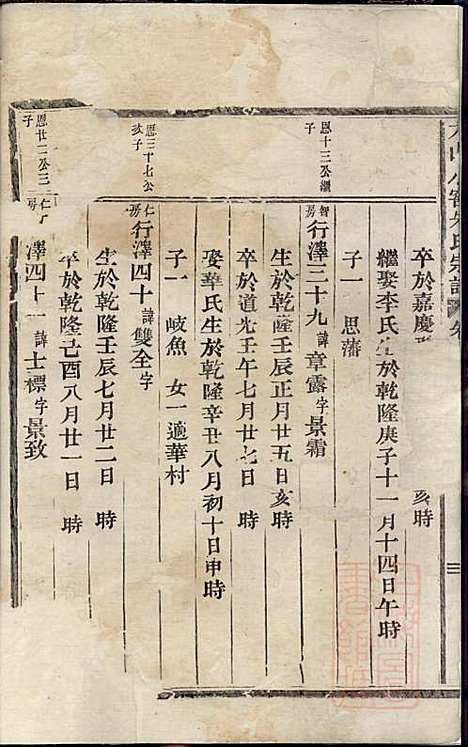 氏宗譜
卒於嘉慶 亥時
繼娶李氏生於乾隆庚子十一月十四日午時
子一 思藩
恩十三公繼子
智房行澤三十九諱章露字景霜
生於乾隆壬辰正月廿五日亥時
卒於道光壬午七月廿七日 時
娶華氏生於乾隆辛丑八月初十日申時
子一 岐魚 女一適華村
恩三十七公 子
仁房行澤四十諱雙全字
生於乾隆壬辰七月廿二日 時
卒於乾隆己酉八月廿一日 時
恩廿二公三子
仁房 澤四十一諱士標字景致